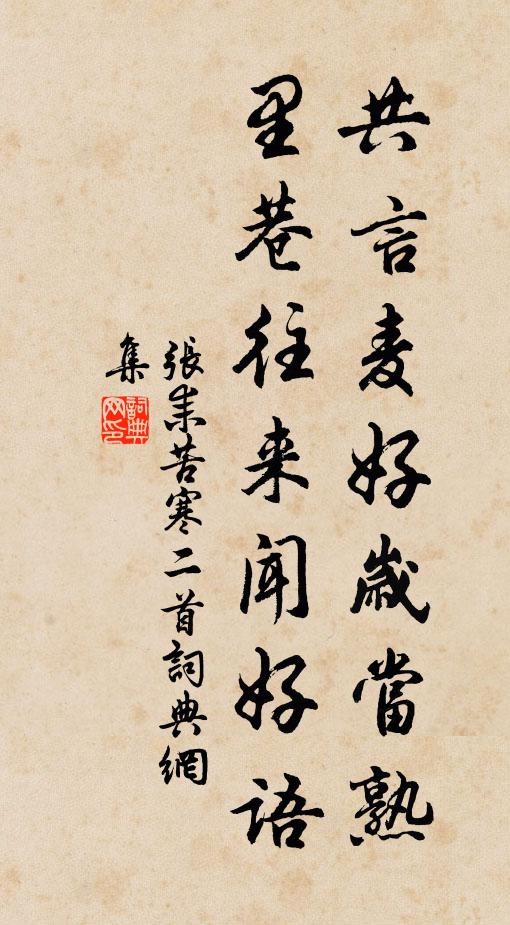 共言麦好歲當熟
里巷往来聞好語
張耒苦寒二首詞典網
集
詞典网印